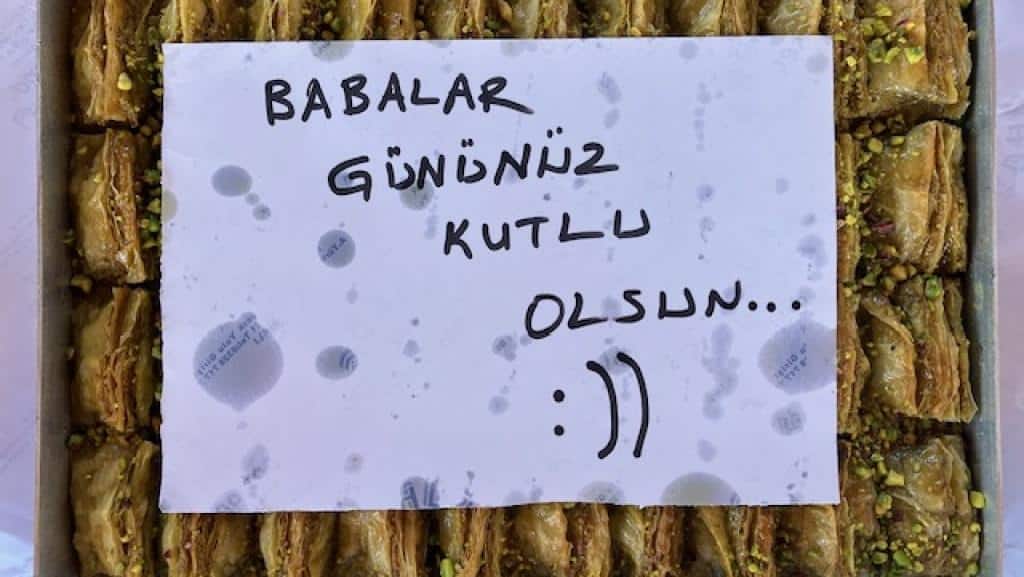 BABALAR
GÜNÜNÜZ
KUTLU
OLSUN...
:))